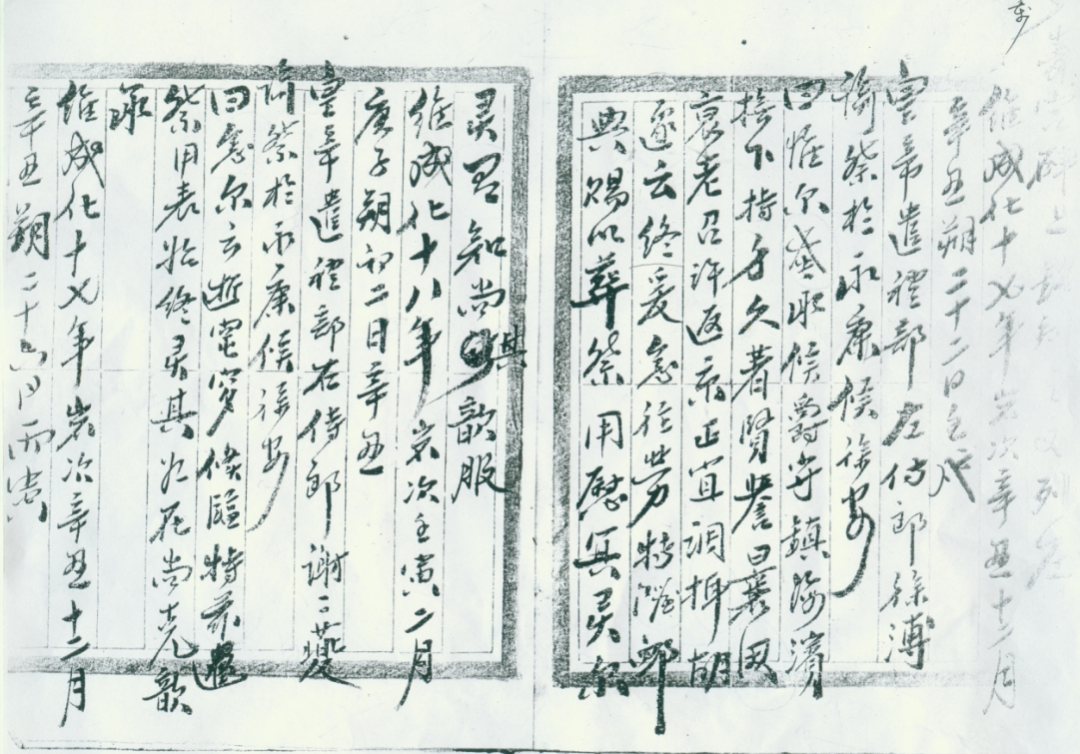 维成化十七年岁次辛丑十二月
辛丑朔二十二日
皇帝遣禮部左侍郎徐溥
谕祭於永康侯徐安
曰惟尔
侯爵守鎮海濱
撫下持身久著賢譽曩因
衰老召许返京正宜调摄胡
遽云终爰念往劳特隆卹
典賜以葬祭用慰冥灵尔
灵有知尚其歆服
维成化十八年岁次壬寅二月
庚子朔初二日辛丑
皇帝遣禮部右侍郎謝一夔
谕祭於永康侯徐安
曰念尔云逝窀穸侯臨特茲遣
祭用表始终灵其如在尚克歆
承
维成化十七年岁次辛丑十二月
辛丑朔二十六日丙寅